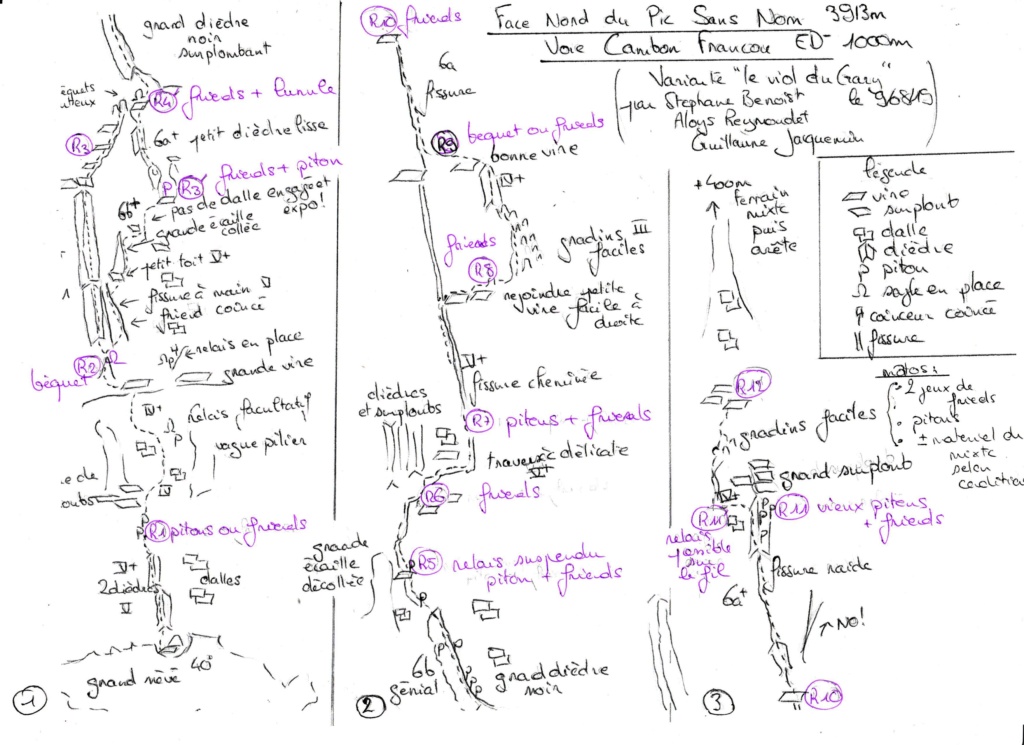 Face Nord du Pic Sans Nom 3913m
Voie Cambon Francou ED- 1000m
Variante "le viol du Gary"
par Stephane Benoist le 96849
Aloys Reynoudet
Guillaume Jacquemin
légende
vire
surplomb
dalle
dièdre
piton
sangle en place
coinceur coincé
fissure
matos :
2 jeux de
friends
pitons
± materiel de
mixte
selon
conditions
grand dièdre
noir
surplombant
R4 friends + lunule
R3
6a+ petit dièdre lisse
R3 friends + piton
pas de dalle engagé et
expo!
6b+
grande écaille
collée
petit toit V+
fissure à main V
friend coincé
R2
béquet
relais en place
grande vire
IV+
relais facultatif
vague pilier
R1 pitons ou friends
V+
2 dièdres
V
dalles
grand névé 40°
1
R10 friends
6a
fissure
R9 béquet ou friends
bonne vire
IV+
friends
R8
gradins III
faciles
rejoindre petite
vire facile à
droite
V+
fissure cheminée
dièdres
et surplombs
R7 pitons + friends
traversée délicate
R6 friends
grande
écaille
décollée
R5 relais suspendu
piton + friends
6b
génial
grand dièdre
noir
2
+400m
terrain
mixte
puis
arête
R12
gradins faciles
grand surplomb
V+
R11
R11 vieux pitons
+ friends
relais
possible
sur
le fil
fissure raide
6a+
NO!
R10
3